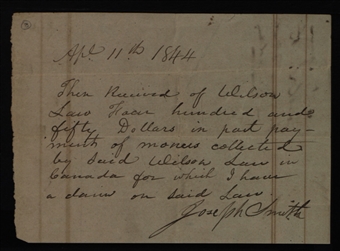 Apl. 11th 1844
Then Received of Wilson
Law Four hundred and
fifty Dollars in part pay-
ment of monies collected
by Said Wilson Law in
Canada for which I have
a claim on said Law.
Joseph Smith